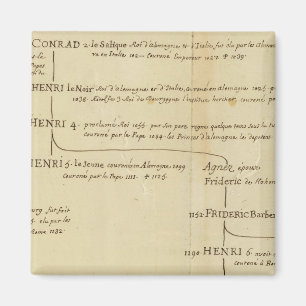 CONRAD 2. le Salique Roi d'Alemagne et d'Italie, fut élu par les Aleman
va en Italie 102 couroné Empereur 1027 ✝ 1039.
HENRI le Noir Roi d'Alemagne et d'Italie, couroné en Alemagne 1026
1038. Rodolfus 3 Roi de Bourgognes l'institue heritier, couroné
HENRI 4. proclamé Roi 1056 par son pere regna quelque tems sous la tu
couroné par le Pape 1084. les Princes d'Alemagne les deposent
HENRI 5. le Jeune couroné en Alemagne 1099
couroné par le Pape 1111. ✝ 1125.
Agnez epouse
Frideric de Hohen
burg fut fait
et élu par les
Rome 1132.
1152 FRIDERIC Barber
1190 HENRI 6. avoit
couroné à